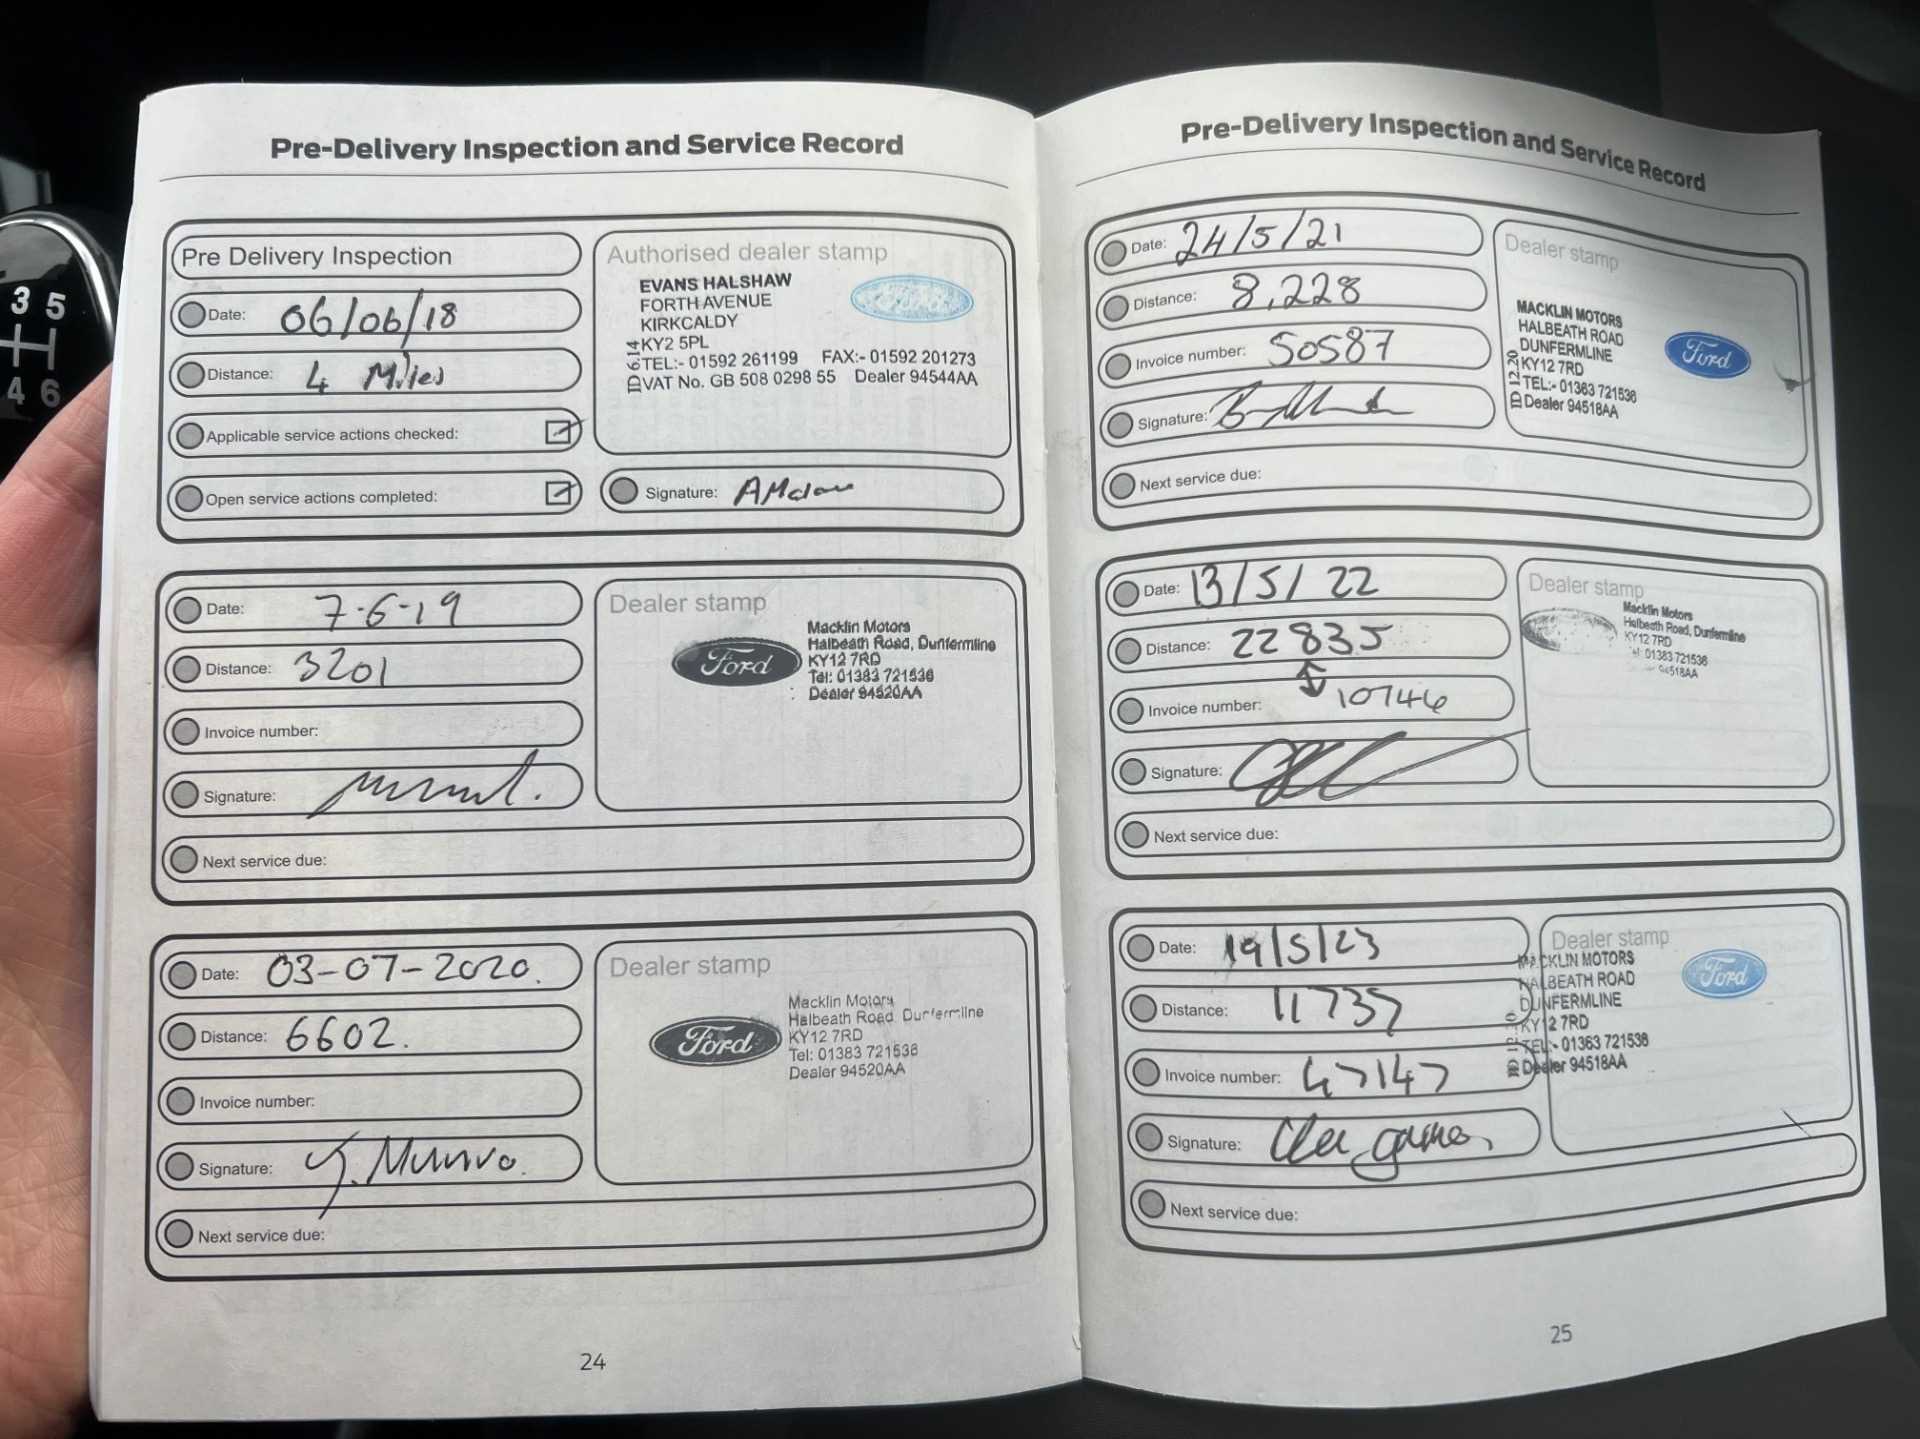 3 5
4 6
Pre-Delivery Inspection and Service Record
Pre Delivery Inspection
Date: 06/06/18
Distance: 4 Miles
Applicable service actions checked:
Open service actions completed:
Authorised dealer stamp
EVANS HALSHAW
FORTH AVENUE
KIRKCALDY
KY2 5PL
TEL:- 01592 261199 FAX:- 01592 201273
VAT No. GB 508 0298 55 Dealer 94544AA
Ford
Signature:
Date: 7-6-19
Distance: 3201
Invoice number:
Signature:
Next service due:
Dealer stamp
Ford
Macklin Motors
Halbeath Road, Dunfermline
KY12 7RD
Tel: 01383 721536
Dealer 94520AA
Date: 03-07-2020.
Distance: 6602.
Invoice number:
Signature: J. Munro.
Next service due:
Dealer stamp
Ford
Macklin Motors
Halbeath Road Dunfermline
KY12 7RD
Tel: 01383 721536
Dealer 94520AA
24
Pre-Delivery Inspection and Service Record
Date: 24/5/21
Distance: 8,228
Invoice number: 50587
Signature:
Next service due:
Dealer stamp
MACKLIN MOTORS
HALBEATH ROAD
DUNFERMLINE
KY12 7RD
TEL:- 01383 721536
Dealer 94518AA
Ford
Date: 13/5/22
Distance: 22835
Invoice number: 10746
Signature:
Next service due:
Dealer stamp
Macklin Motors
Halbeath Road, Dunfermline
KY12 7RD
01383 721536
94518AA
Date: 19/5/23
Distance: 11737
Invoice number: 47147
Signature:
Next service due:
Dealer stamp
MACKLIN MOTORS
HALBEATH ROAD
DUNFERMLINE
KY12 7RD
TEL:- 01383 721536
Dealer 94518AA
Ford
25